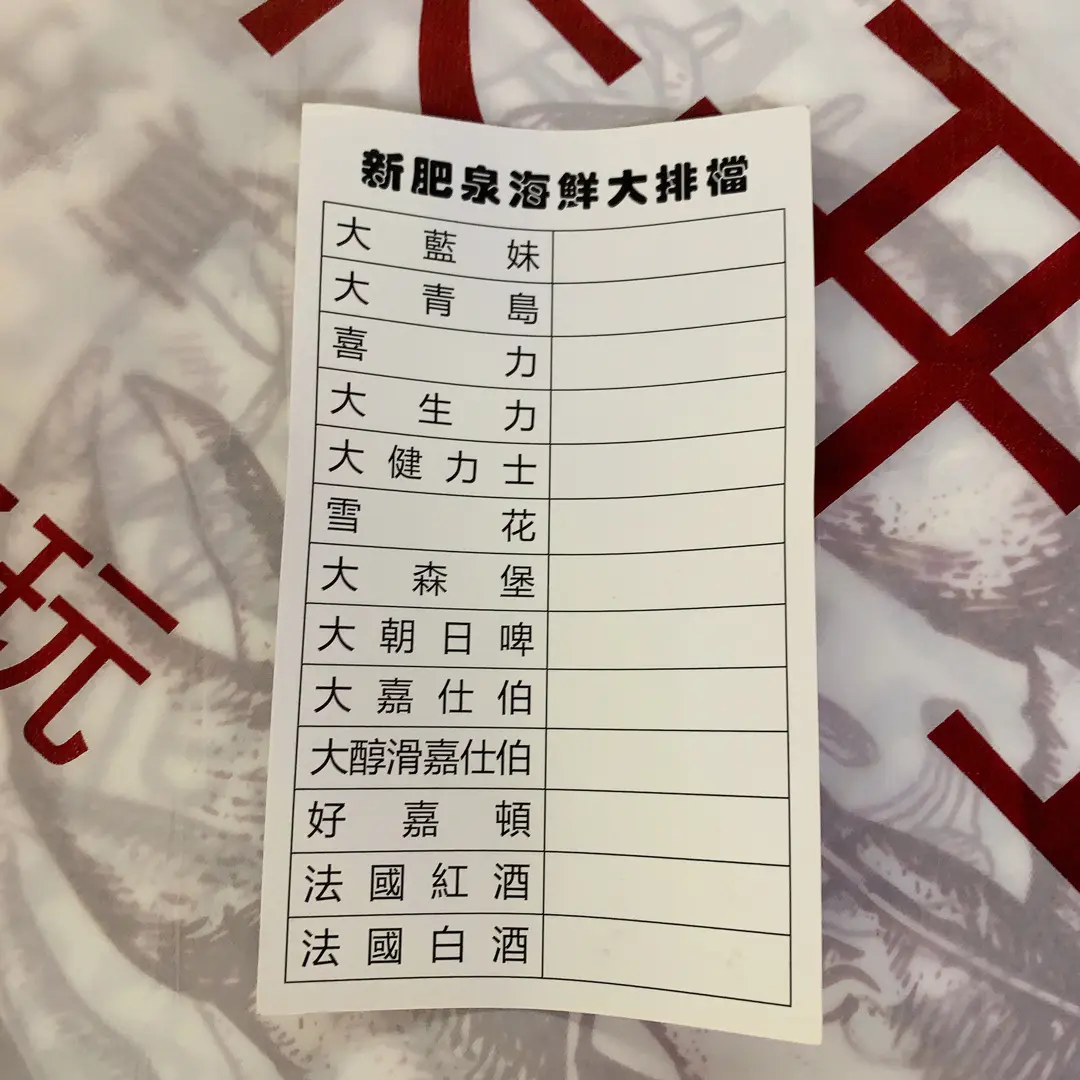 新肥泉海鮮大排檔
大藍妹
大青島
喜力
大生力
大健力士
雪花
大森堡
大朝日啤
大嘉仕伯
大醇滑嘉仕伯
好嘉頓
法國紅酒
法國白酒
玩